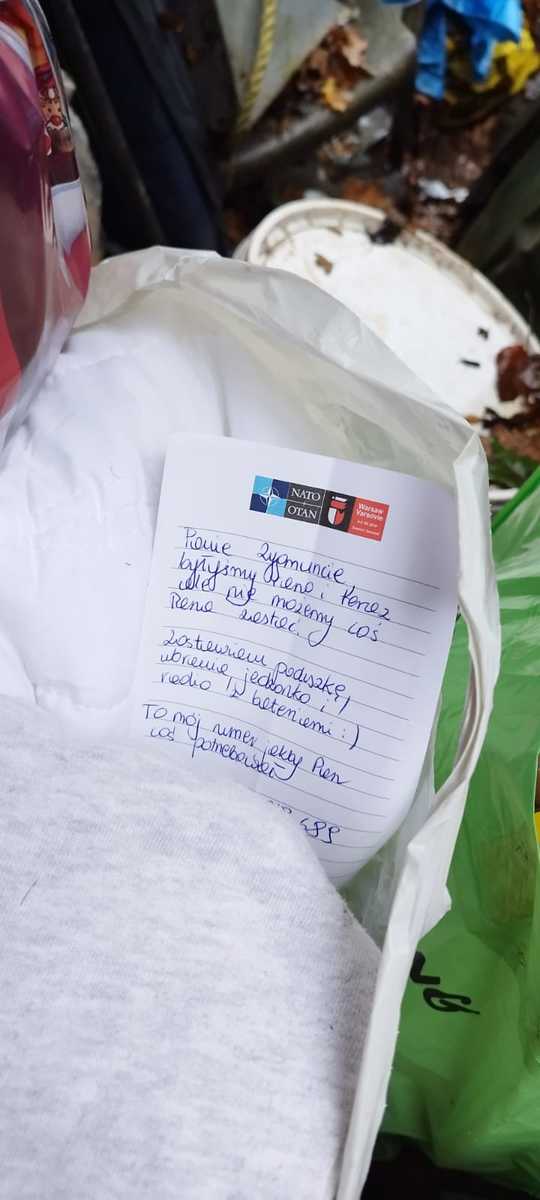 NATO
OTAN
Warsaw
Varsovie
Panie Zygmuncie,
byłyśmy rano i teraz
ale nie możemy coś
Pana zastać.
Zostawiam poduszkę,
ubranie, jedzonko i
radio z bateriami :)
To mój numer jakby Pan
coś potrzebował
689